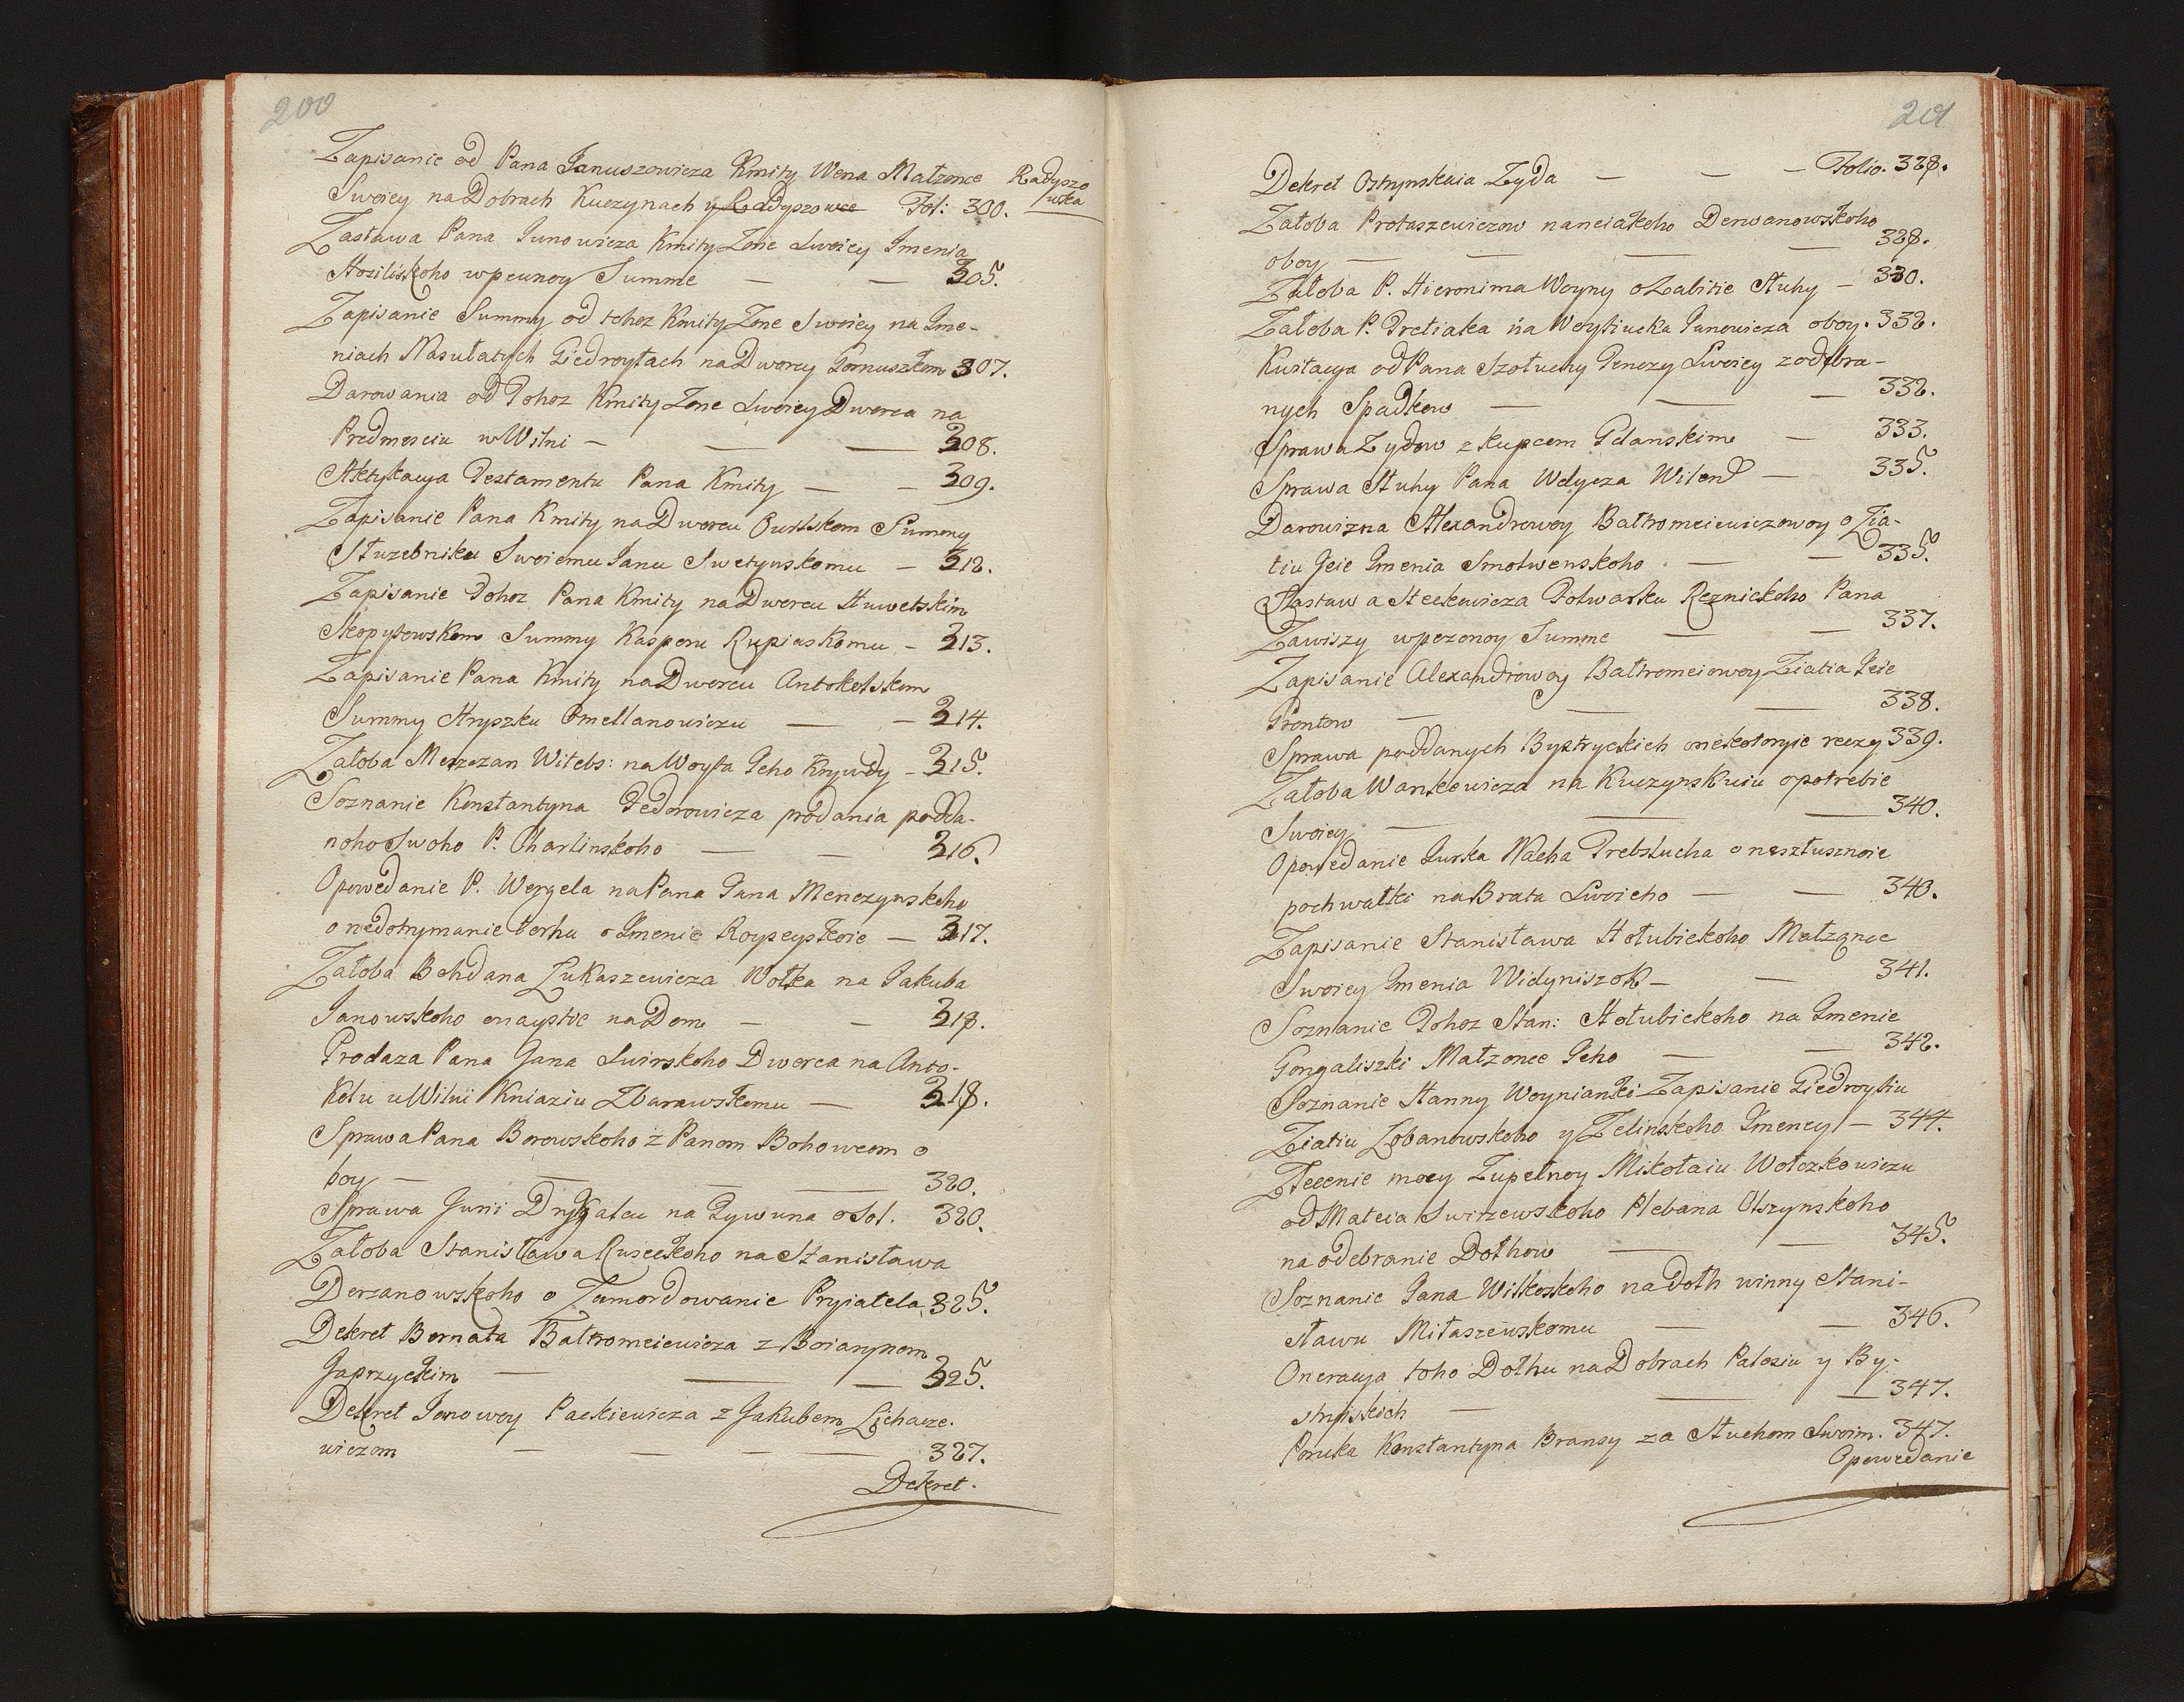 200
Zapisanie od Pana Januszowicza Kmity Wena Małzonce Radyszo
Swoiey na Dobrach Kuczynach y Radyszowce Fol: 300. wka
Zastawa Pana Janowicza Kmity Zone Swoiey Imenia
Hosiliskoho wpewnoy Summe — — 305.
Zapisanie Summy od tohoz Kmity Zone Swoiey na Ime-
niach Masułatych Giedroytach na Dworcy Pornuszkom 307.
Darowania od Tohoz Kmity Zone Swoiey Dworca na
Predmesciu w Wilni — — — 308.
Aktykacya Testamentu Pana Kmity — — 309.
Zapisanie Pana Kmity na Dworcu Summy
Słuzebniku Swoiemu Janu Swetynskomu — 312.
Zapisanie Tohoz Pana Kmity na Dworcu Huwetskim
Skopytowskom Summy Kasperu Rupiaskomu — 313.
Zapisanie Pana Kmity na Dworcu Antokolskom
Summy Hryszku Omellanowiczu — — 314.
Załoba Mesczan Witebs: na Woyta Jeho Krywdy — 315.
Soznanie Konstantyna Fedorowicza prodania podda-
noho Swoho P. Charlinskoho — — 316.
Opowedanie P. Wergela na Pana Jana Menczynskoho
o nedotrymanie torhu o Imenie Roypeyskoie — 317.
Załoba Bohdana Łukaszewicza Wołka na Jakuba
Janowskoho o naystie na Dom — — 318.
Prodaza Pana Jana Swirskoho Dworca na Anto-
kolu u Wilni Kniaziu Zbarawskomu — 318.
Sprawa Pana Borowskoho z Panom Bohowcom o
boy — — — — 320.
Sprawa Jurii Drygałcu na Tywuna o Sol. 320.
Załoba Stanisława Ruseckoho na Stanisława
Derzanowskoho o Zamordowanie Pryiatela 325.
Dekret Bernata Bałtromeiewicza z Boiarynom
Japrzyckim — — — 325.
Dekret Janowoy Packiewicza z Jakubem Lichacze-
wiczom — — — — 327.
Dekret.
201
Dekret Ostrynskaia Zyda — — — Folio. 328.
Załoba Protaszewiczow na neiakoho Derwanowskoho
oboy — — — — 328.
Załoba P. Hieronima Woyny o Zabitie Słuhy — 330.
Załoba P. Tretiaka na Woytiucka Janowicza oboy. 332.
Kwitacya od Pana Szołuchy Jenczy Swoiey z odebra-
nych Spadkow — — — 332.
Sprawa Zydow z kupcem Gdanskim — 333.
Sprawa Słuhy Pana Wdycza Wilen — 335.
Darowizna Alexandrowoy Bałtromeiewiczowoy o Zia-
tiu Jeie Imenia Smolwenskoho — — 335.
Zastawa Steckewicza Folwarku Reznickoho Pana
Zawiszy wpezonoy Summe — — 337.
Zapisanie Alexandrowoy Bałtromeiowoy Ziatia Jeie
Grontow — — — 338.
Sprawa poddanych Bystryckich o nekotoryie reczy 339.
Załoba Wankowicza na Kuczynskuiu o potrebie
Swoiey — — — 340.
Opowedanie Jurka Wacha Trebslucha o nesztusznoie
pochwałki na Brata Swoieho — — 340.
Zapisanie Stanisława Hołubickoho Małzonce
Swoiey Imenia Widyniszok — — 341.
Soznanie Tohoz Stan: Hołubickoho na Imenie
Gongaliszki Małzonce Jeho — — 342.
Soznanie Hanny Woynianki Zapisanie Giedroytiu
Ziatiu Łobanowskoho y Zelinskoho Imeney — 344.
Złecenie mocy Zupełnoy Mikołaiu Wołczkowiczu
od Mateia Swirzewskoho Plebana Olszynskoho
na odebranie Dołhow — — 345.
Soznanie Jana Wilkoskoho na dołh winny Stani-
sławu Miłaszewskomu — — 346.
Oneracya toho Dołhu na Dobrach Palosiu y By-
stryskich — — — 347.
Poruka Konstantyna Bransy za Słuchom Swoim. 347.
Opowedanie